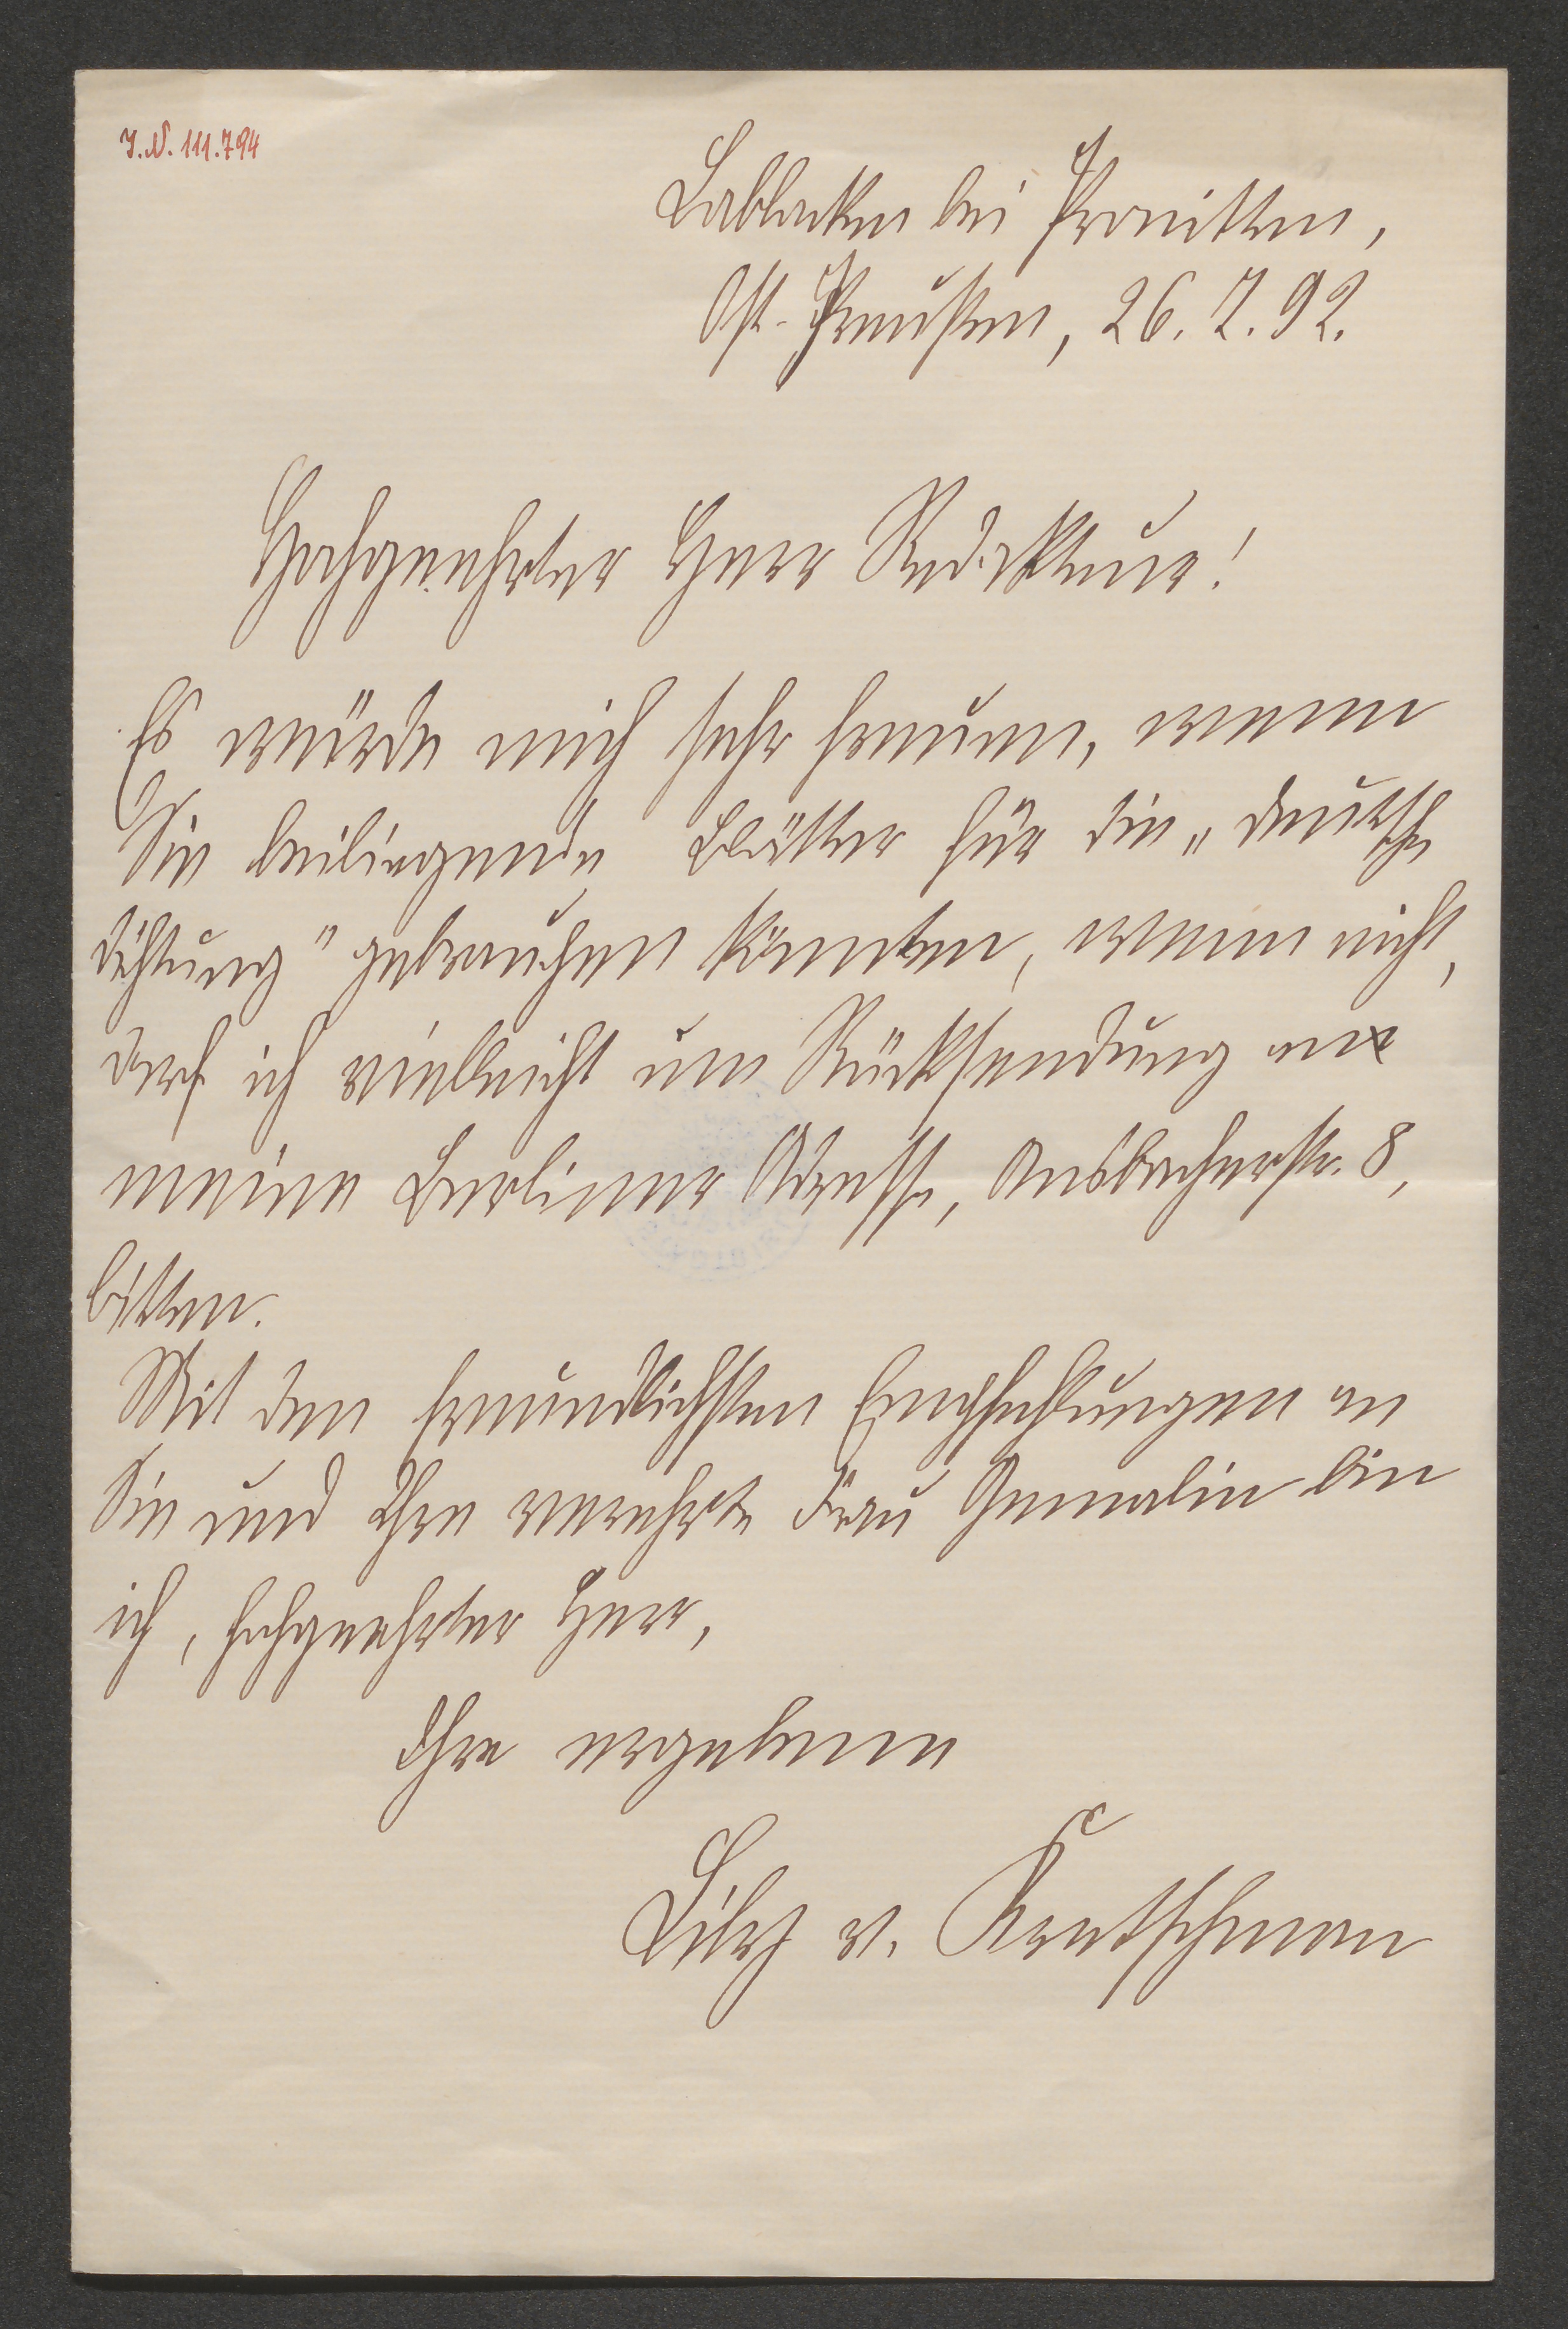 I.N. 111.794
Lablacken bei Pronitten,
Ost-Preußen, 26.7.92.
Hochgeehrter Herr Redakteur!
Es würde mich sehr freuen, wenn
Sie beiliegende Blätter für die „deutsche
Dichtung" gebrauchen könnten, wenn nicht,
darf ich vielleicht um Rücksendung an
meine Berliner Adresse, Ansbacherstr. 8,
bitten.
Mit den freundlichsten Empfehlungen an
Sie und Ihre verehrte Frau Gemalin bin
ich, hochgeehrter Herr,
Ihre ergebene
Lily v. Kretschman